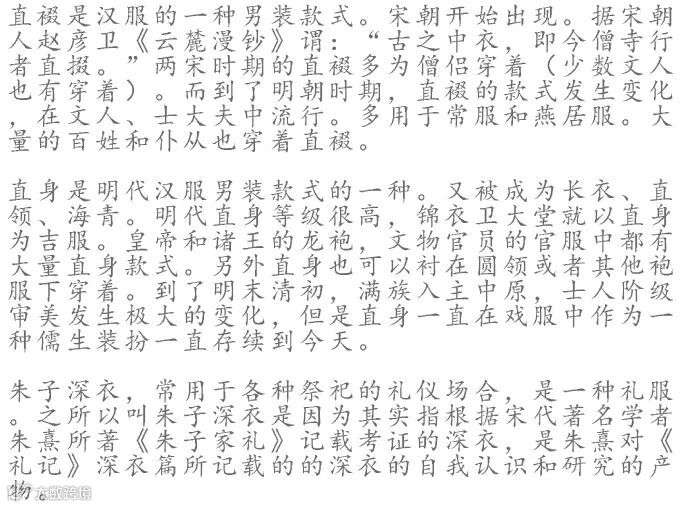 直裰是汉服的一种男装款式。宋朝开始出现。据宋朝
人赵彦卫《云麓漫钞》谓：“古之中衣，即今僧寺行
者直掇。”两宋时期的直裰多为僧侣穿着（少数文人
也有穿着）。而到了明朝时期，直裰的款式发生变化
，在文人、士大夫中流行。多用于常服和燕居服。大
量的百姓和仆从也穿着直裰。
直身是明代汉服男装款式的一种。又被成为长衣、直
领、海青。明代直身等级很高，锦衣卫大堂就以直身
为吉服。皇帝和诸王的龙袍，文物官员的官服中都有
大量直身款式。另外直身也可以衬在圆领或者其他袍
服下穿着。到了明末清初，满族入主中原，士人阶级
审美发生极大的变化，但是直身一直在戏服中作为一
种儒生装扮一直存续到今天。
朱子深衣，常用于各种祭祀的礼仪场合，是一种礼服
。之所以叫朱子深衣是因为其实指根据宋代著名学者
朱熹所著《朱子家礼》记载考证的深衣，是朱熹对《
礼记》深衣篇所记载的的深衣的自我认识和研究的产
物。
大数跨境